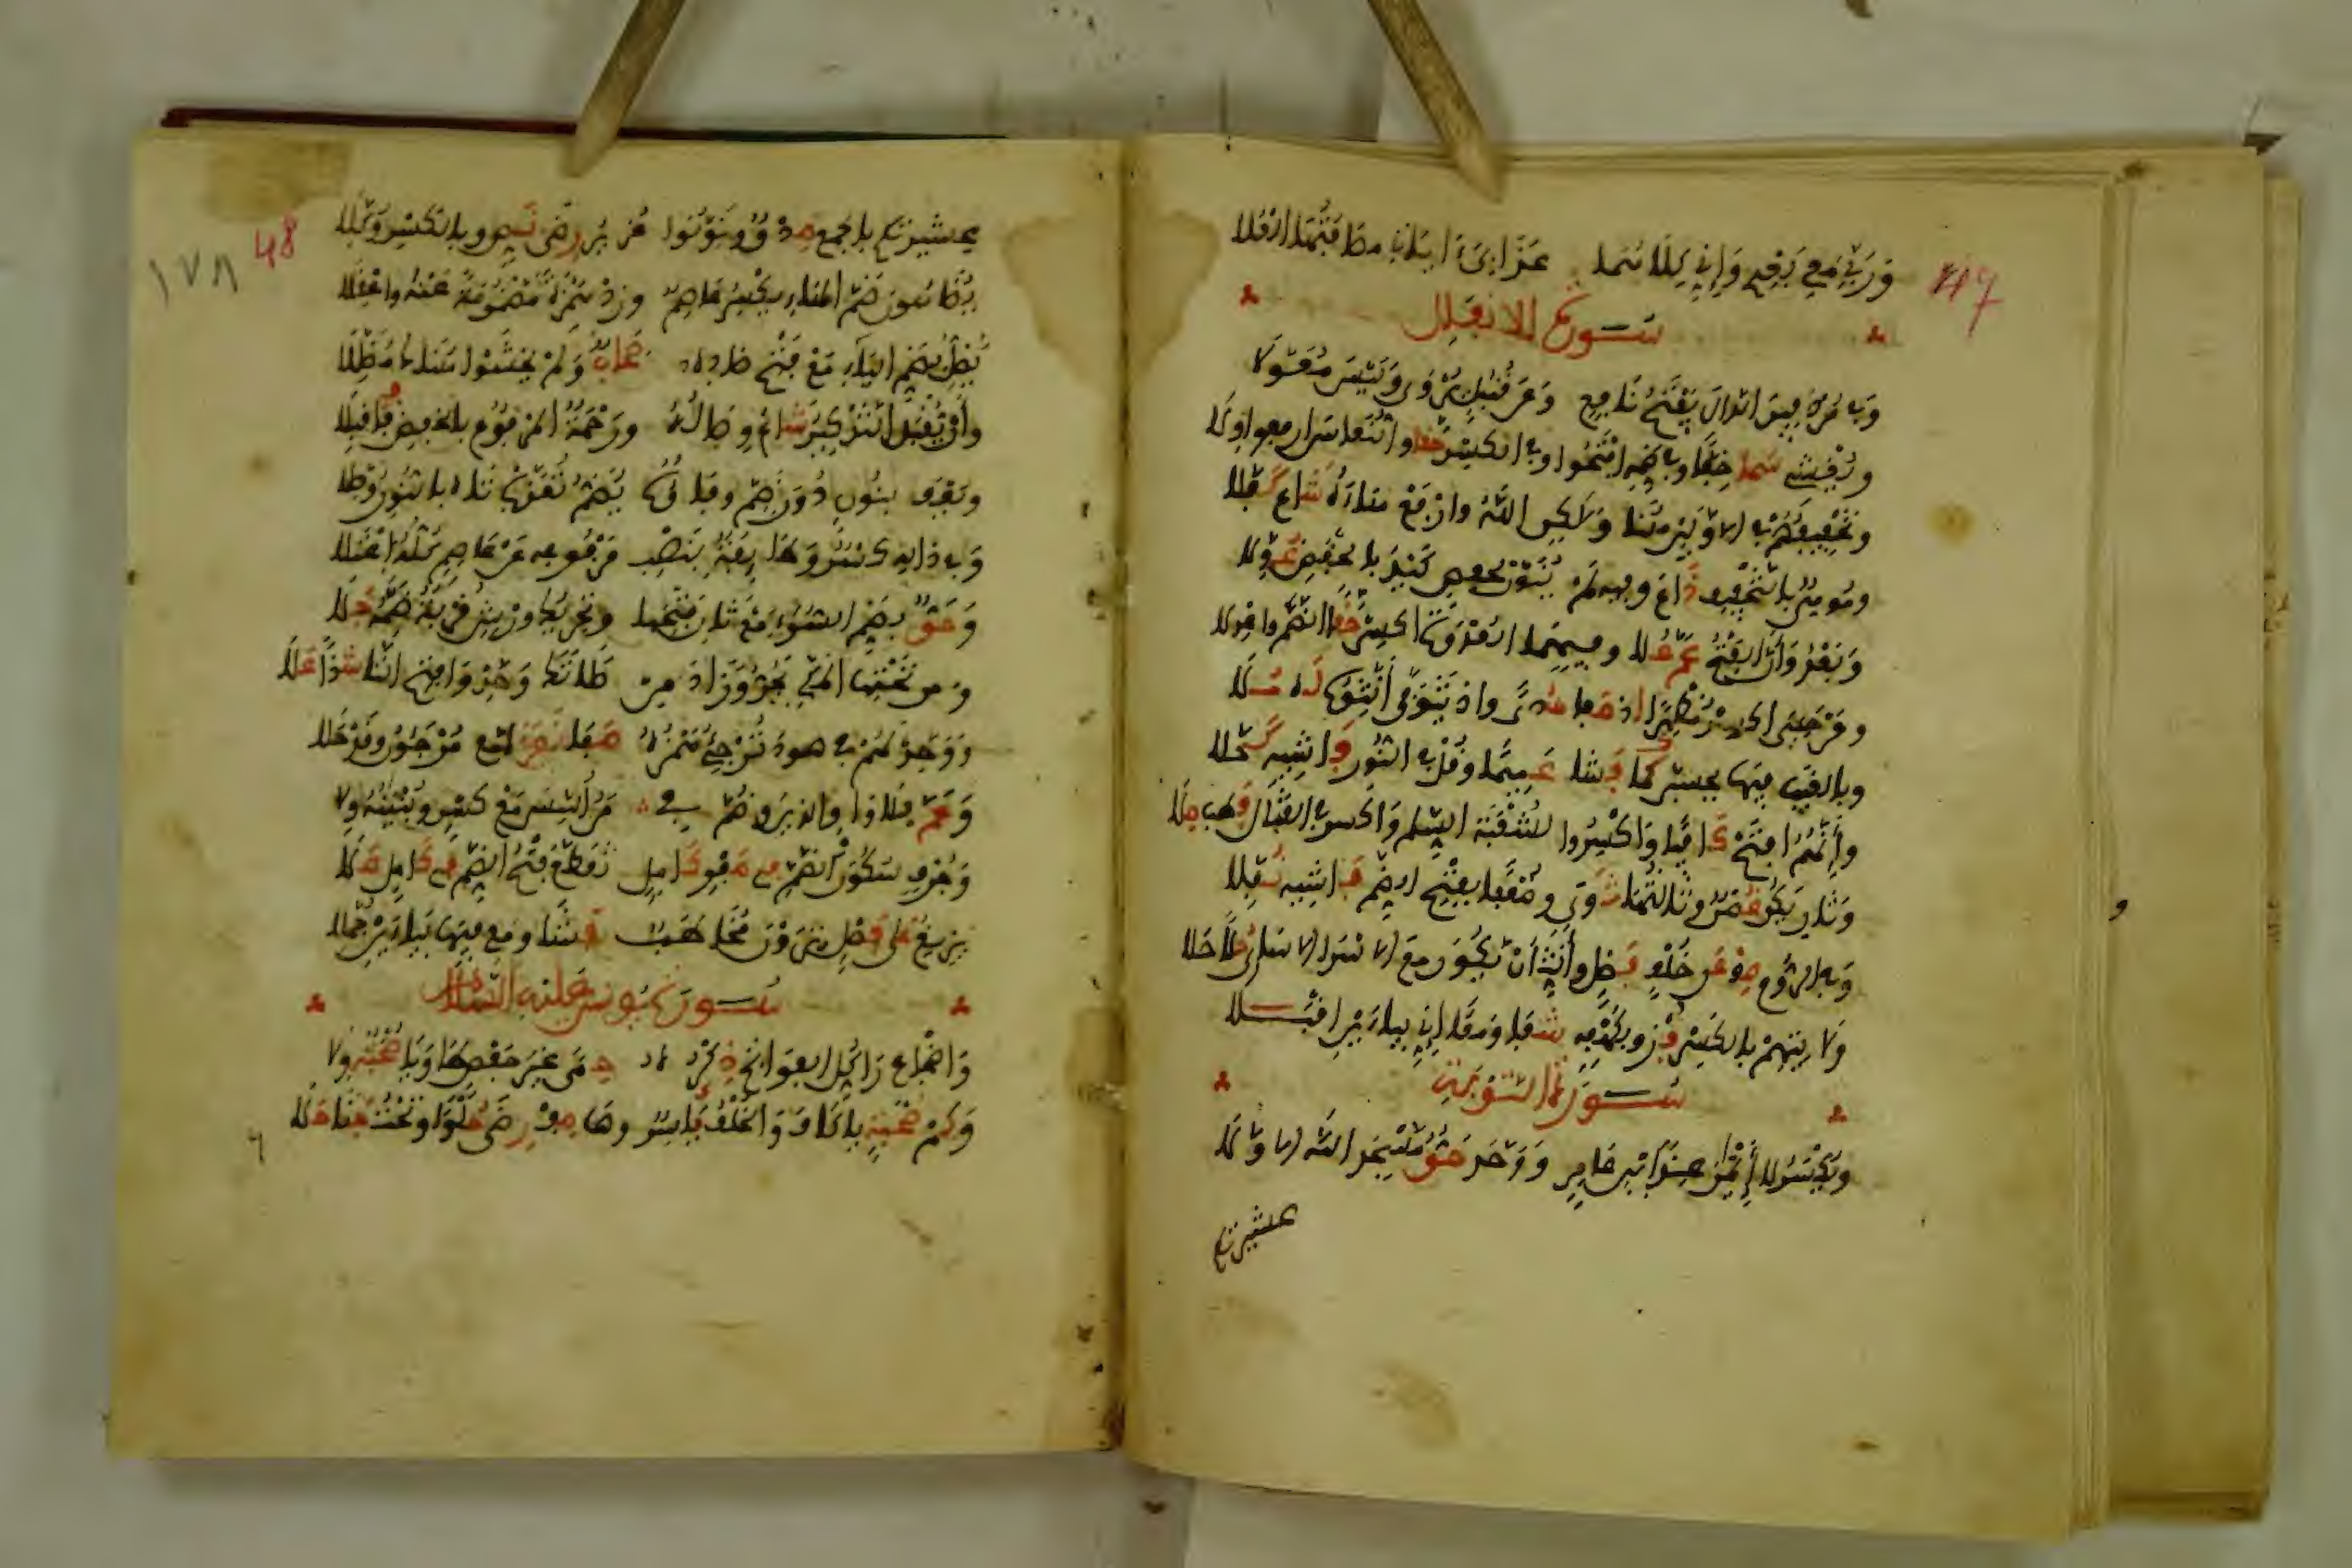 وربي معي بعدي وإني كلاهما عذابي آياتي مضافاتها العلا
47
سورة الانفال
وفي مردفين الدال يفتح نافع وعن قنبل يروى وليس معولا
ويغشي سما خفا وفي ضمه افتحوا وفي الكسر حقا والنعاس ارفعوا ولا
وتخفيفهم في الاولين هنا ولكن الله وارفع هاءه شاع كفلا
وموهن بالتخفيف ذاع وفيه لم ينون لحفص كيد بالخفض عولا
وبعد وان الفتح عم علا وفيهما العدوة اكسر حقا الضم واعدلا
ومن حيي اكسر مظهرا اذ صفا هدى واذ يتوفى انثوه له ملا
وبالغيب فيها تحسبن كما فشا عميما وقل في النور فاشيه كحلا
وانهم افتح كافيا واكسروا لشعبة السلم واكسر في القتال فطب صلا
وثاني يكن غصن وثالثها ثوى وضعفا بفتح الضم فاشيه نفلا
وفي الروم صف عن خلف فصل وأنث أن يكون مع الاسرى الاسارى حلا حلا
ولايتهم بالكسر فز وبكهفه شفا ومعا إني بياءين اقبلا
سورة التوبة
ويكسر لا أيمان عند ابن عامر ووحد حق مسجد الله الاولا
عشيرتكم
48
١٧٨
عشيرتكم بالجمع صدق ونونوا عزير رضى نص وبالكسر وكلا
يضاهون ضم الهاء يكسر عاصم وزد همزة مضمومة عنه واعقلا
يضل بضم الياء مع فتح ضاده صحاب ولم يخشوا هناك مضللا
وأن يقبل التذكير شاع وصاله ورحمة المرفوع بالخفض فاقبلا
ويعف بنون دون ضم وفاؤه يضم تعذب تاه بالنون وصلا
وفي ذاله كسر وطائفة بنصب مرفوعه عن عاصم كله اعتلا
وحق بضم السوء مع ثان فتحها وتحريك ورش قربة ضمه جلا
ومن تحتها المكي يجر وزاد من صلاتك وحد وافتح التا شذا علا
ووحد لهم في هود ترجئ همزه صفا نفر مع مرجئون وقد حلا
وعم بلا واو الذين وضم في من اسس مع كسر وبنيانه ولا
وجرف سكون الضم في صفو كامل تقطع فتح الضم في كامل علا
يزيغ على فصل يرون مخاطب فشا ومعي فيها بياءين جملا
سورة يونس عليه السلام
واضجاع را كل الفواتح ذكره حمى غير حفص طا ويا صحبة ولا
وكم صحبة يا كاف والخلف ياسر وها صف رضى حلوا وتحت جنى حلا